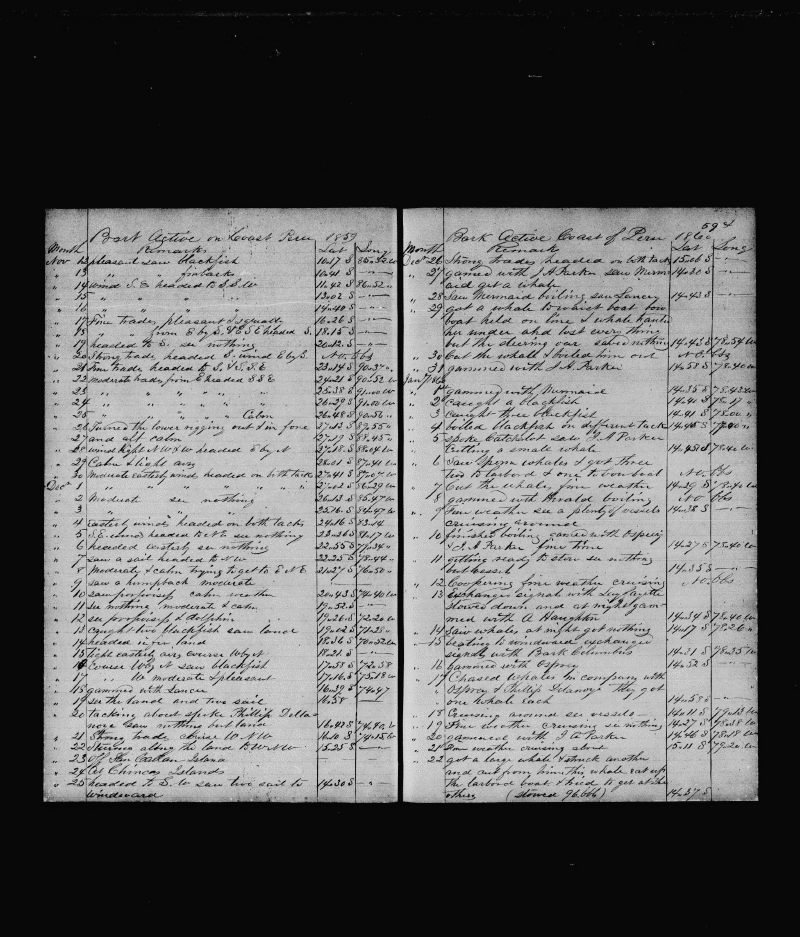 Bark Active on Coast Peru 1859
Month Remarks Lat Long
Nov 12 pleasant saw blackfish 10.17 S 86.52 W
" 13 " " finback 10.41 S — " —
" 14 wind S.E headed to S.S.W 11.42 S 86.52 "
" 15 " " " " " 13.02 S — " —
" 16 " " " " " 14.40 S — " —
" 17 Fine trades pleasant & squally 16.26 S — " —
" 18 " " from E by S & E S E headed S. 18.15 S — " —
" 19 headed to S. see nothing 20.12 S — " —
" 20 Strong trades headed S. wind E by S. No. Obs
" 21 Fine trades headed to S. & S.S.E 23.14 S 90.37 "
" 22 moderate trades from E headed S S E 24.21 S 90.52 W
" 23 " " " " " " 25.38 S 91.00 W
" 24 " " " " " " 26.29 S 91.00 W
" 25 " " " " " Calm 26.48 S 90.50 "
" 26 Turned the lower rigging out & in fore 27.13 S 89.55 "
" 27 and aft calm 27.17 S 88.45 "
" 28 wind light N W & W headed E by N 27.18 S 88.04 W
" 29 Calm & light airs 28.01 S 87.41 W
" 30 moderate easterly winds headed on both tacks 27.41 S 87.07 W
Dec 1 " " " " " " " 27.02 S 86.29 W
" 2 Moderate see nothing 26.13 S 85.47 W
" 3 " " " 25.16 S 84.47 W
" 4 easterly winds headed on both tacks 24.16 S 83.14
" 5 S.E. winds headed E & N see nothing 23.26 S 81.17 W
" 6 headed easterly see nothing 22.55 S 79.34 "
" 7 saw a sail headed to N W 22.25 S 78.44 "
" 8 Moderate & calm trying to get to E N E 21.27 S 76.50 "
" 9 saw a humpback moderate
" 10 saw porpoises calm weather 20.43 S 74.40 W
" 11 see nothing moderate & calm 19.52 S — " —
" 12 see porpoises & dolphin 19.26 S 72.20 W
" 13 caught two blackfish saw land 19.02 S 71.28 "
" 14 headed in for land 18.36 S 70.52 W
" 15 light easterly airs course W by N 18.21 S — " —
" 16 Course W by N saw blackfish 17.58 S 72.58
" 17 " W moderate & pleasant 17.16 S 75.18 W
" 18 gammed with Lancer 16.39 S 74.47
" 19 see the land and two sail 16.58
" 20 tacking about spoke Phillip Della
nore saw nothing but land 16.42 S 74.80 W
" 21 Strong trade course W N W 16.10 S 74.15 W
" 22 Steering along the land to W N W 15.25 S — " —
" 23 off San Gallan Island
" 24 at Chincas Islands
" 25 headed to S. W saw two sail to 14.30 S — " —
windward
594
Bark Active Coast of Peru 1860
Month Remark Lat Long
Dec 26 Strong trades headed on both tack 15.06 S — " —
" 27 gamed with J A Parker saw Merm 14.30 S — " —
aid get a whale
" 28 Saw Mermaid boiling saw Lancer 14.43 S — " —
" 29 got a whale to whist boat bow
boat held on line & whale hauled
her under and lost every thing
but the steering oar saved nothing 14.43 S 78.54 W
" 30 Cut the whale & boiled him out No. Obs
" 31 gammed with J. A. Parker 14.58 S 78.40 W
Jany 1860
1st gammed with Mermaid 14.35 S 78.43 W
" 2 caught a blackfish 14.41 S 78.17 "
" 3 caught three blackfish 14.41 S 78.00 "
" 4 boiled blackfish on different tack 14.45 S
" 5 spoke Catchelot saw J. A Parker
Cutting a small whale 14.48 S 78.42 W
" 6 Saw Sperm whales & got three
two Larbord & one to bow boat No. Obs
" 7 Cut the whales fine weather 14.29 S 78.40 W
" 8 gammed with Herald boiling No Obs
" 9 Fine weather see a plenty of vessels 14.38 S — " —
cruising around
" 10 finished boiling gamed with Osprey
& J. A Parker fine time 14.27 S 78.40 W
" 11 getting ready to stow see nothing
but vessels 14.35 S — " —
" 12 Coopering fine weather cruising No. Obs
" 13 exchanges signals with Lafayette
stowed down and at night gam
med with A Haughton 14.34 S 78.40 W
" 14 Saw whales at night got nothing 14.17 S 78.26 "
" 15 beating to windward exchanged
signals with Bark Columbus 14.31 S 78.25 W
" 16 gammed with Osprey 14.52 S — " —
" 17 Chased whales in company with
Osprey & Phillip Delanoye they got
one whale each 14.58 S
" 18 Cruising around see vessels 14.11 S 79.13 W
" 19 Fine weather cruising see nothing 14.27 S 78.38 W
" 20 gammed with J. A Parker 14.46 S 78.18 W
" 21 Fine weather cruising about 15.11 S 79.20 W
" 22 got a large whale & struck another
and cut from him this whale eat up
the larbord boat & tried to get at the
others (stowed 96.666) 14.37 S